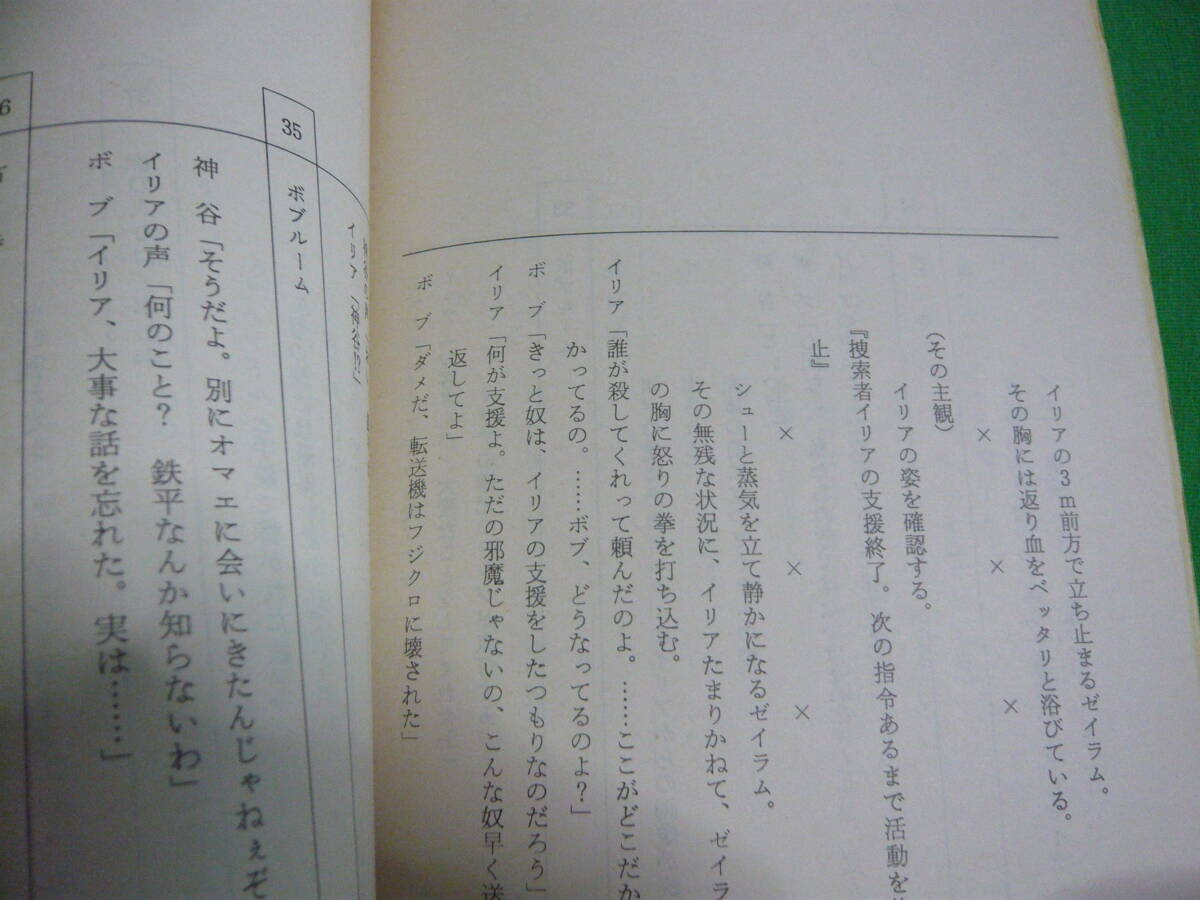 イリアの3m前方で立ち止まるゼイラム。
その胸には返り血をベッタリと浴びている。
× × ×
(その主観)
イリアの姿を確認する。
『捜索者イリアの支援終了。次の指令あるまで活動を
止』
× × ×
シューと蒸気を立て静かになるゼイラム。
その無残な状況に、イリアたまりかねて、ゼイラ
の胸に怒りの拳を打ち込む。
イリア「誰が殺してくれって頼んだのよ。……ここがどこだか
かってるの。……ボブ、どうなってるのよ?」
ボブ「きっと奴は、イリアの支援をしたつもりなのだろう」
イリア「何が支援よ。ただの邪魔じゃないの、こんな奴早く送
返してよ」
ボブ「ダメだ、転送機はフジクロに壊された」
イリア「神谷!?」
35 ボブルーム
神谷「そうだよ。別にオマエに会いにきたんじゃねぇぞ
イリアの声「何のこと? 鉄平なんか知らないわ」
ボブ「イリア、大事な話を忘れた。実は……」
6